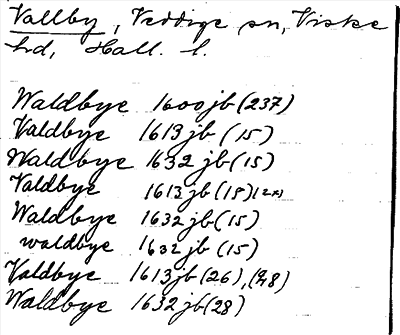 Vallby, Veddige sn, Viske
hd, Hall. l.
Waldbye 1600 jb (237)
Valdbye 1613 jb (15)
Waldbye 1632 jb (15)
Valdbye 1613 jb (15) (2x)
Waldbye 1632 jb (15)
waldbye 1632 jb (15)
Valdbye 1613 jb (26), (28)
Waldbye 1632 jb (28)